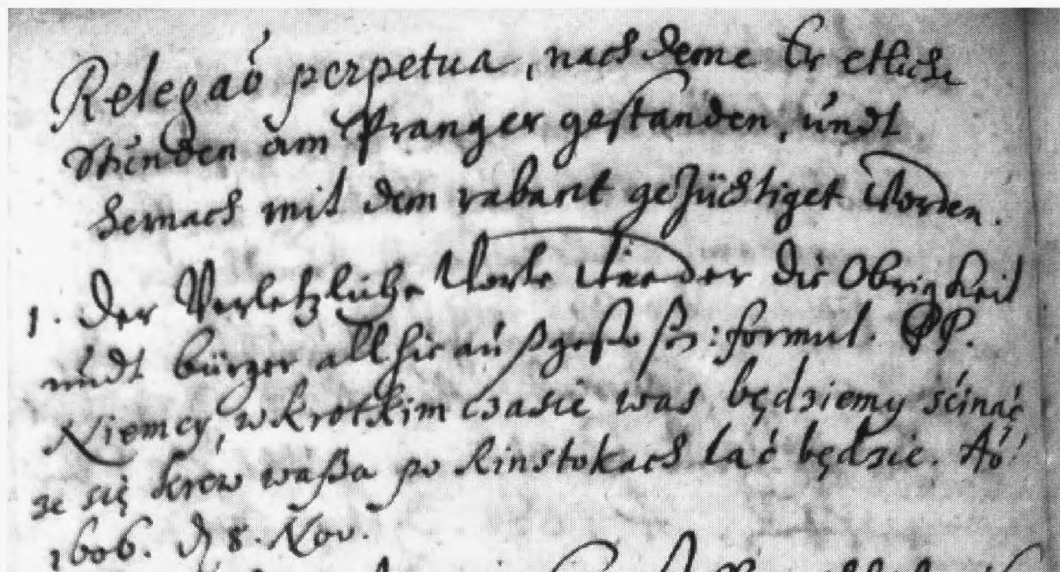 Relegaõ perpetua, nach deme Er etliche
Stunden am Pranger gestanden, undt
hernach mit dem rabant gezüchtiget worden.
1. Der Verletzliche Worte wieder die Obrigkeit
undt bürger allhie außgestoßen: formul. PP.
Niemcy, w krotkim czasie was będziemy ścinać
ze się krew waßa po Rinstokach lać będzie. Aõ
1606. d 8. Nov.